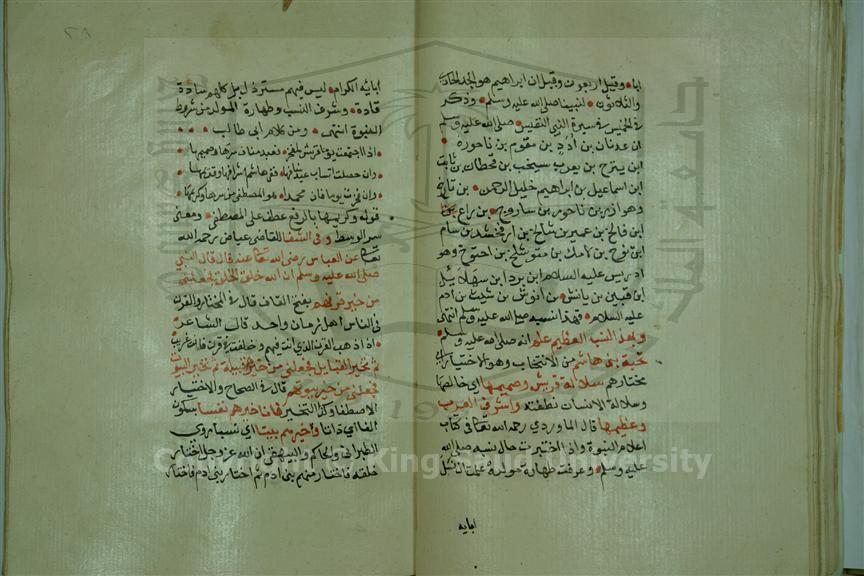 ابا وقيل اربعون وقيل ان ابراهيم هو الجد الحادي
والثلاثون لنبينا صلى الله عليه وسلم وذكر
في الخميس في سيرة النبي النفيس صلى الله عليه وسلم
ان عدنان بن أدد بن مقوم بن ناحور
ابن يترح بن يعرب بن يشجب بن قحطان بن ثابت
ابن اسماعيل بن ابراهيم خليل الرحمن بن تارخ
وهو ازر بن ناحور بن ساروح بن راع
ابن فالخ بن عمير بن شالخ بن ارفخشد بن سام
ابن نوح بن لامك بن متوشلخ بن اخنوخ وهو
ادريس عليه السلام ابن برد ابن مهلائيل
ابن قينين بن يانش بن انوش بن شيث بن ادم
عليه السلام فهذا نسبه صلى الله عليه وسلم انتهى
وبهذا النسب العظيم علو الله صلى الله عليه وسلم
نخبة بني هاشم من الانتخاب وهو الاختيار اي
مختارهم سلالة قريش وصميمها اي خالصها
وسلالة الانسان نطفته واشرف العرب
وعظيمها قال الماوردي رحمه الله تعالى في كتاب
اعلام النبوة واذا اختبرت حال نسبه صلى الله
عليه وسلم وعرفت طهارة مولده علمت انه سلالة
ابايه
ابائه الكرام ليس فيهم مسترذل بل كلهم سادة
قادة وشرف النسب وطهارة المولد من شروط
النبوة انتهى ومن كلام ابي طالب
اذا اجتمعت يوما قريش لمفخر فعبد مناف سرها وصميمها
وان حصلت انساب عبد منافها ففي هاشم اشرافها وقديمها
وان فخرت يوما فان محمدا هو المصطفى من سرها وكريمها
قوله وكريمها بالرفع عطف على المصطفى ومعنى
سر الوسط وفي الشفا للقاضي عياض رحمه الله
تعالى عن العباس رضي الله تعالى عنه قال قال النبي
صلى الله عليه وسلم ان الله خلق الخلق فجعلني
من خير قرنهم بفتح القاف قال في المختار والقرن
في الناس اهل زمان واحد قال الشاعر
اذا ذهب القرن الذي انت فيهم وخلفت في قرن فانت غريب
ثم تخير القبايل فجعلني من خير قبيلة ثم تخير البيوت
فجعلني من خير بيوتهم قال في الصحاح والاختيار
الاصطفا وكذا التخير فانا خيرهم نفسا بسكون
الفا اي ذاتا وخيرهم بيتا اي نسبا وروى
الطبراني والحاكم والبيهقي ان الله عز وجل اختار
خلقه فاختار منهم بني ادم ثم اختار بني ادم فاختار
King Saud University